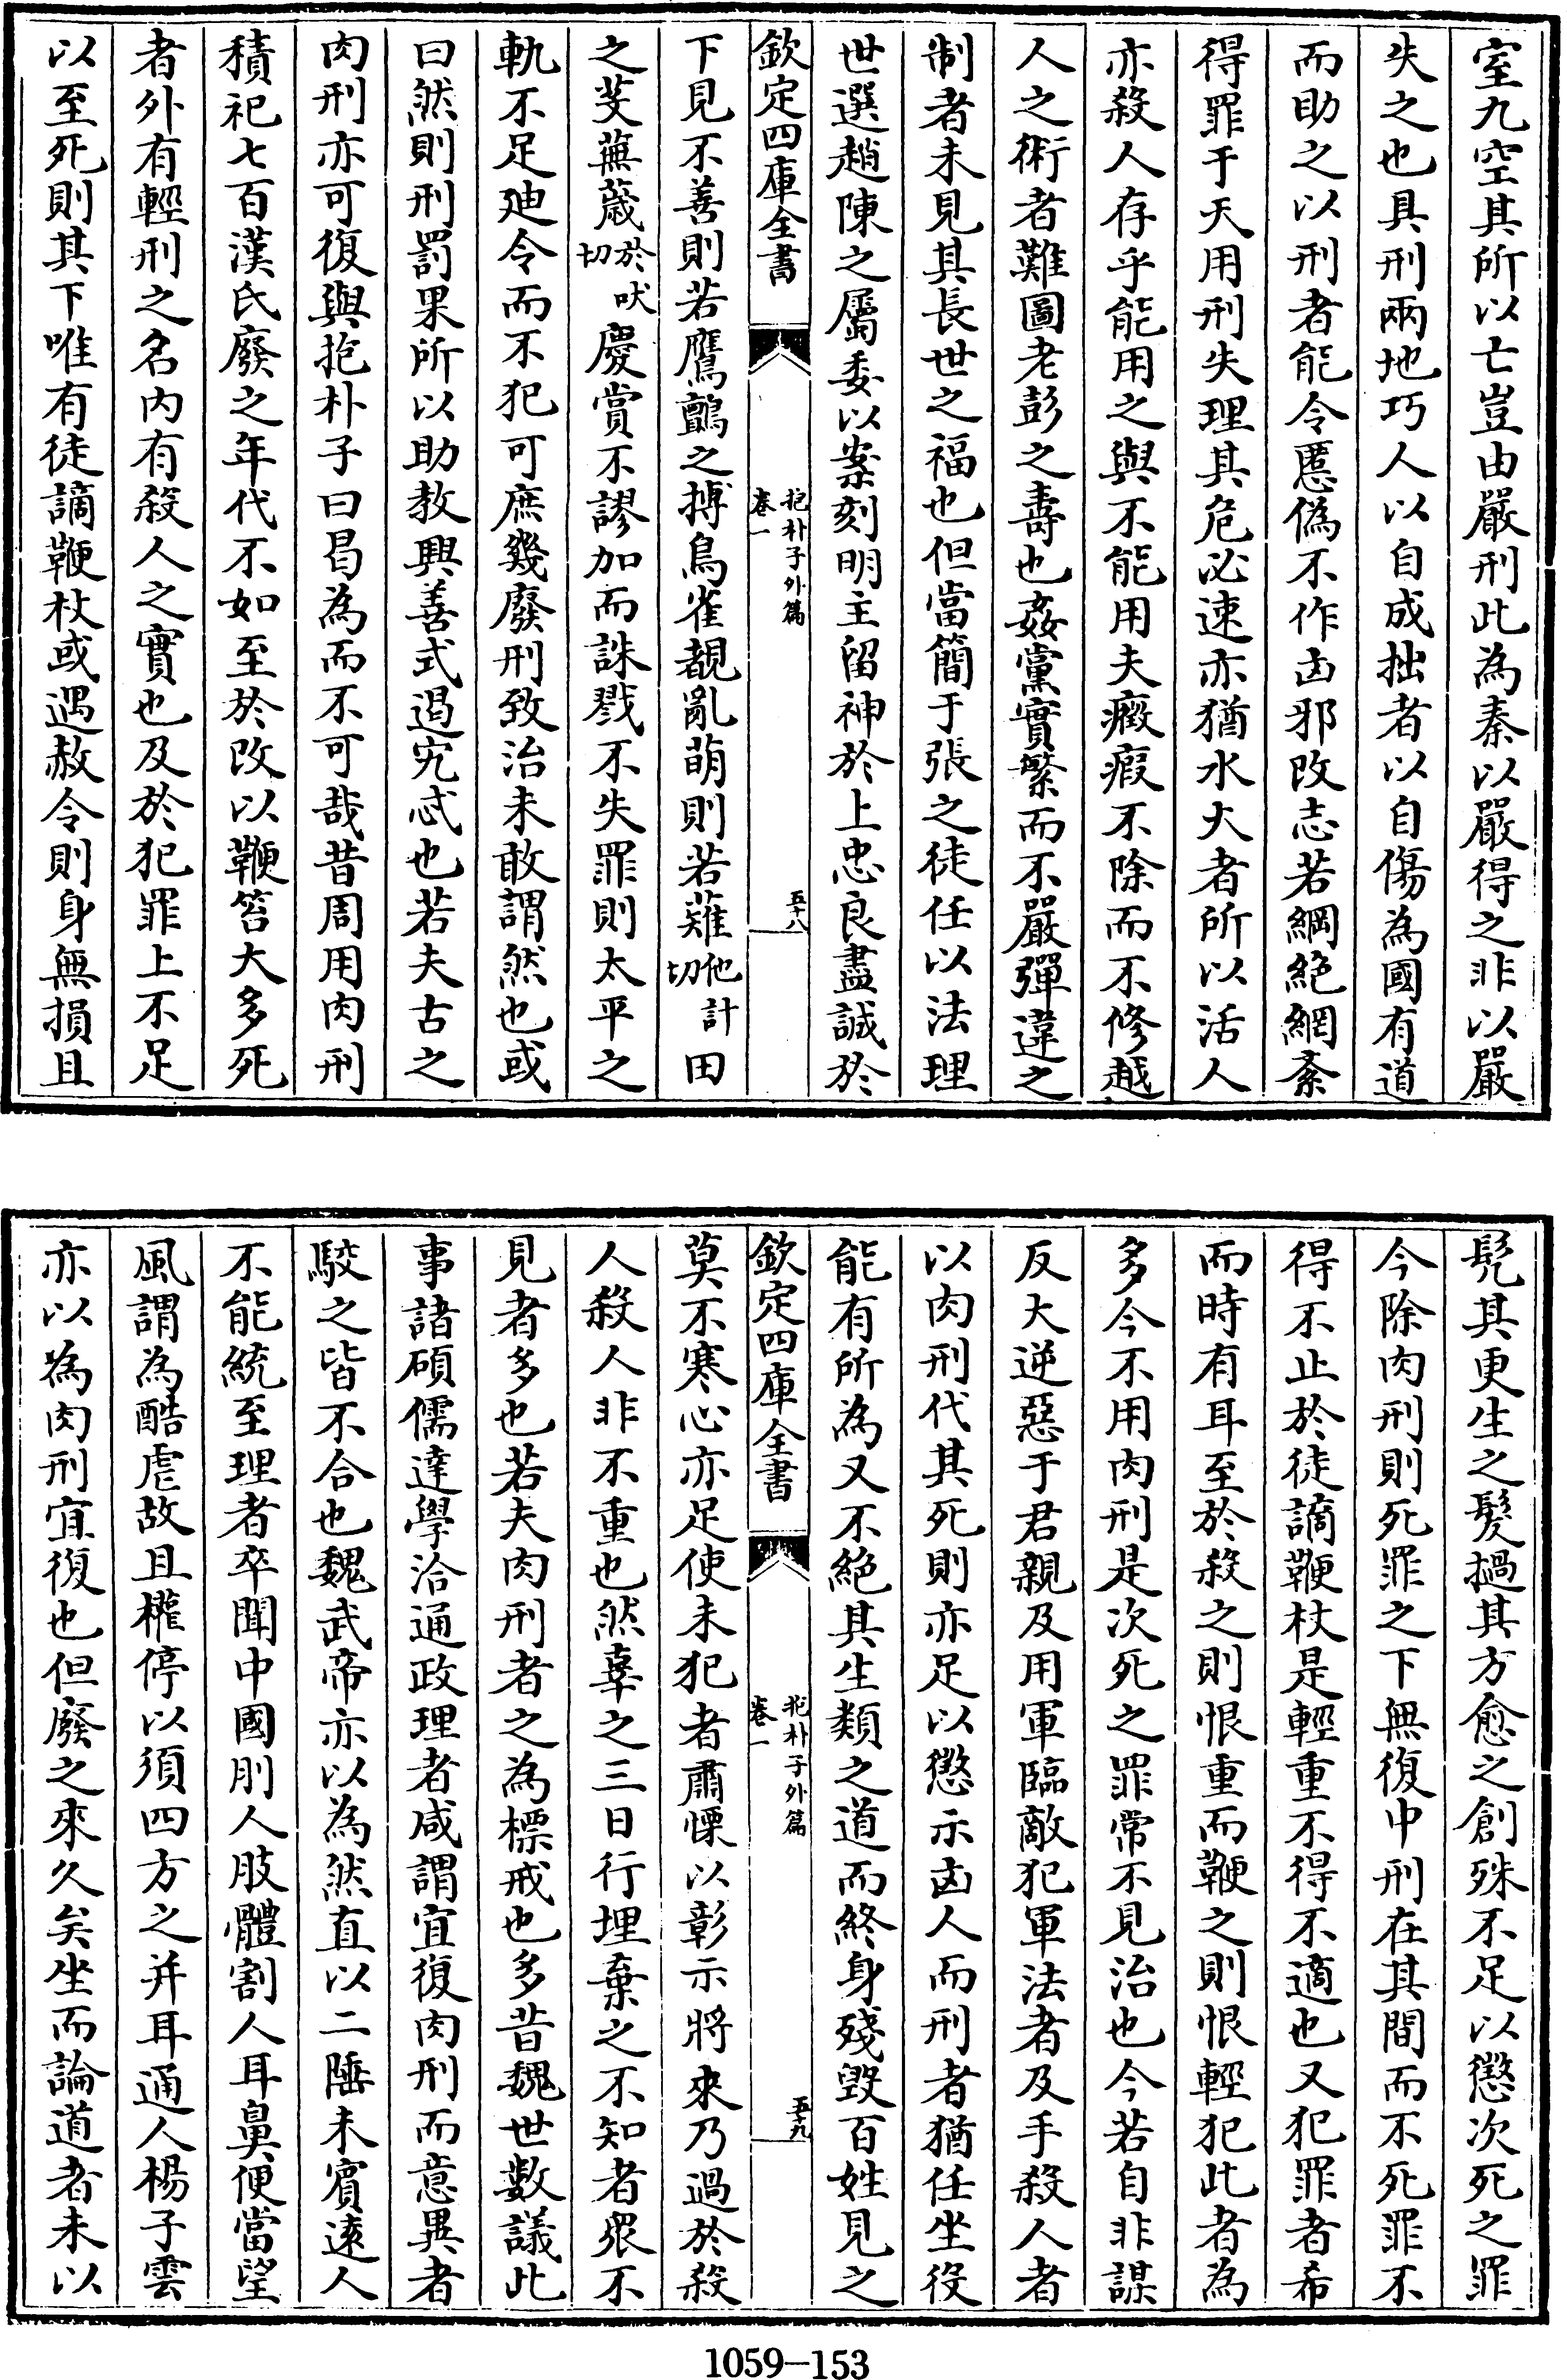 室九空其所以亡豈由嚴刑此為秦以嚴得之非以嚴
失之也具刑兩地巧人以自成拙者以自傷為國有道
而助之以刑者能令慝偽不作凶邪改志若綱絕網紊
得罪于天用刑失理其危必速亦猶水火者所以活人
亦殺人存乎能用之與不能用夫癥瘕不除而不修越
人之術者難圖老彭之壽也姦黨實繁而不嚴彈違之
制者未見其長世之福也但當簡于張之徒任以法理
世選趙陳之屬委以案刻明主留神於上忠良盡誠於
欽定四庫全書
抱朴子外篇
卷一
五十八
下見不善則若鷹鸇之搏鳥雀覩亂萌則若薙他計切田
之芟蕪薉於吠切慶賞不謬加而誅戮不失罪則太平之
軌不足廸令而不犯可庶幾廢刑致治未敢謂然也或
曰然則刑罰果所以助教興善式遏宄忒也若夫古之
肉刑亦可復與抱朴子曰曷為而不可哉昔周用肉刑
積祀七百漢氏廢之年代不如至於改以鞭笞大多死
者外有輕刑之名內有殺人之實也及於犯罪上不足
以至死則其下唯有徒謫鞭杖或遇赦令則身無損且
髠其更生之髮撾其方愈之創殊不足以懲次死之罪
今除肉刑則死罪之下無復中刑在其間而不死罪不
得不止於徒謫鞭杖是輕重不得不適也又犯罪者希
而時有耳至於殺之則恨重而鞭之則恨輕犯此者為
多今不用肉刑是次死之罪常不見治也今若自非謀
反大逆惡于君親及用軍臨敵犯軍法者及手殺人者
以肉刑代其死則亦足以懲示凶人而刑者猶任坐役
能有所為又不絕其生類之道而終身殘毀百姓見之
欽定四庫全書
抱朴子外篇
卷一
五十九
莫不寒心亦足使未犯者肅慄以彰示將來乃過於殺
人殺人非不重也然辜之三日行埋棄之不知者衆不
見者多也若夫肉刑者之為標戒也多昔魏世數議此
事諸碩儒達學洽通政理者咸謂宜復肉刑而意異者
駮之皆不合也魏武帝亦以為然直以二陲未賓遠人
不能統至理者卒聞中國刖人肢體割人耳鼻便當望
風謂為酷虐故且權停以須四方之并耳通人楊子雲
亦以為肉刑宜復也但廢之來久矣坐而論道者未以
1059—153